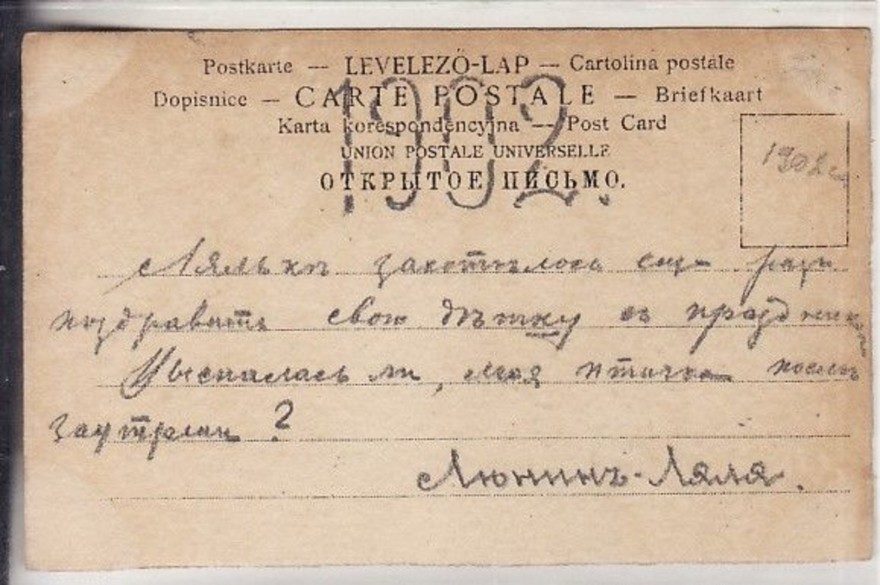 Postkarte — LEVELEZÖ-LAP — Cartolina postale
Dopisnice — CARTE POSTALE — Briefkaart
Karta korespondencyjna — Post Card
UNION POSTALE UNIVERSELLE
ОТКРЫТОЕ ПИСЬМО.
1902.
1902
Лялькѣ захотѣлось еще разъ
поздравить свою дѣтку съ праздникомъ
Выспалась ли, моя птичка послѣ
заутрени?
Люнинъ-Ляля.